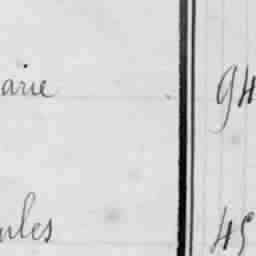 arie 94
ules 45